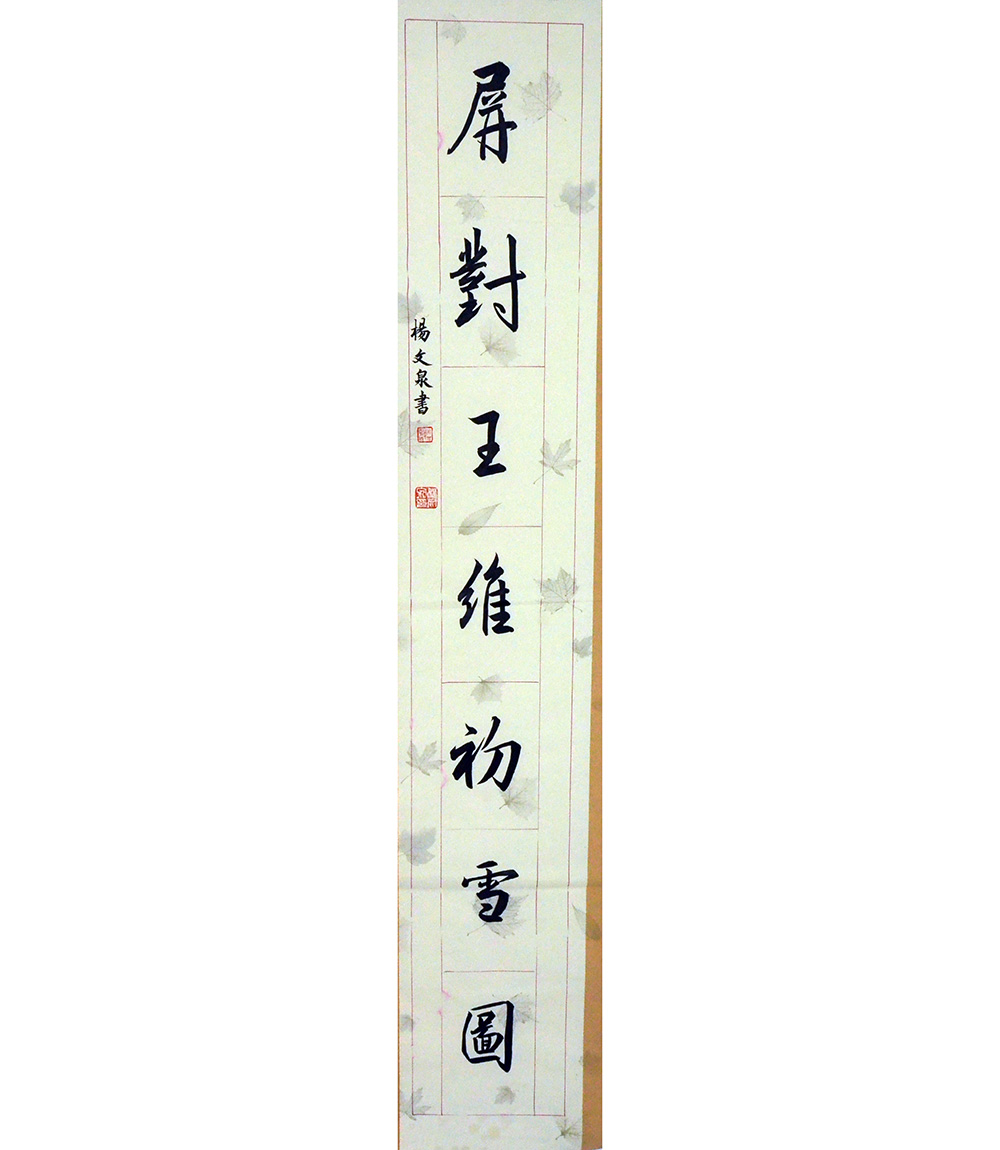 屏對王維初雪圖
楊文泉書